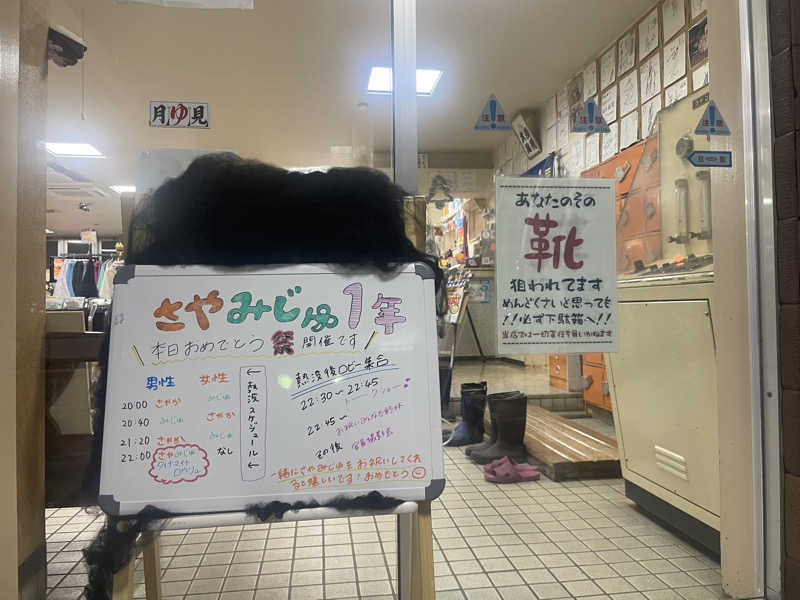 月ゆ見
注意
注意
注意
さやみじゅ1年
本日おめでとう祭開催です
男性 女性
20:00 さやか みじゅ
20:40 みじゅ さやか
21:20 さやか みじゅ
22:00 さやみじゅ なし
ダイナマイト
←熱波スケジュール←
熱波後ロビー集合
22:30〜22:45
トークショー
22:45〜
その後
一緒にさやみじゅをお祝いしてくれ
ると嬉しいです!おめでとう
あなたのその
靴
狙われてます
めんどくさいと思っても
!!必ず下駄箱へ!!
当店では一切責任を負いかねます